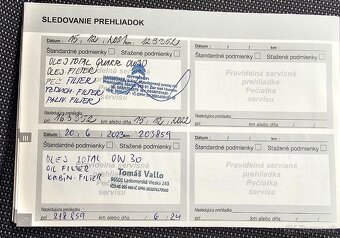 SLEDOVANIE PREHLIADOK
Dátum 15. 12. 2021
Štandardné podmienky Sťažené podmienky
OLEJ TOTAL QUARTZ 0W30
OLEJ FILTER
PEĽ FILTER
VZDUCH FILTER
PALIV. FILTER
Nasledujúca prehliadka
pri km alebo dňa 15. 12. 2022
Dátum / / km
Štandardné podmienky Sťažené podmienky
Pravidelná servisná
prehliadka
Pečiatka
servisu
Nasledujúca prehliadka
pri km alebo dňa / /
III
Dátum 20. 6. 2023 km 203859
Štandardné podmienky Sťažené podmienky
OLEJ TOTAL 0W30
OIL FILTER
KABIN. FILTER
Tomáš Vallo
96502 Ladomerská Vieska 243
Nasledujúca prehliadka
pri 218 859 km alebo dňa / 6 / 24
Dátum / / km
Štandardné podmienky Sťažené podmienky
Pravidelná servisná
prehliadka
Pečiatka
servisu
Nasledujúca prehliadka
pri km alebo dňa / /